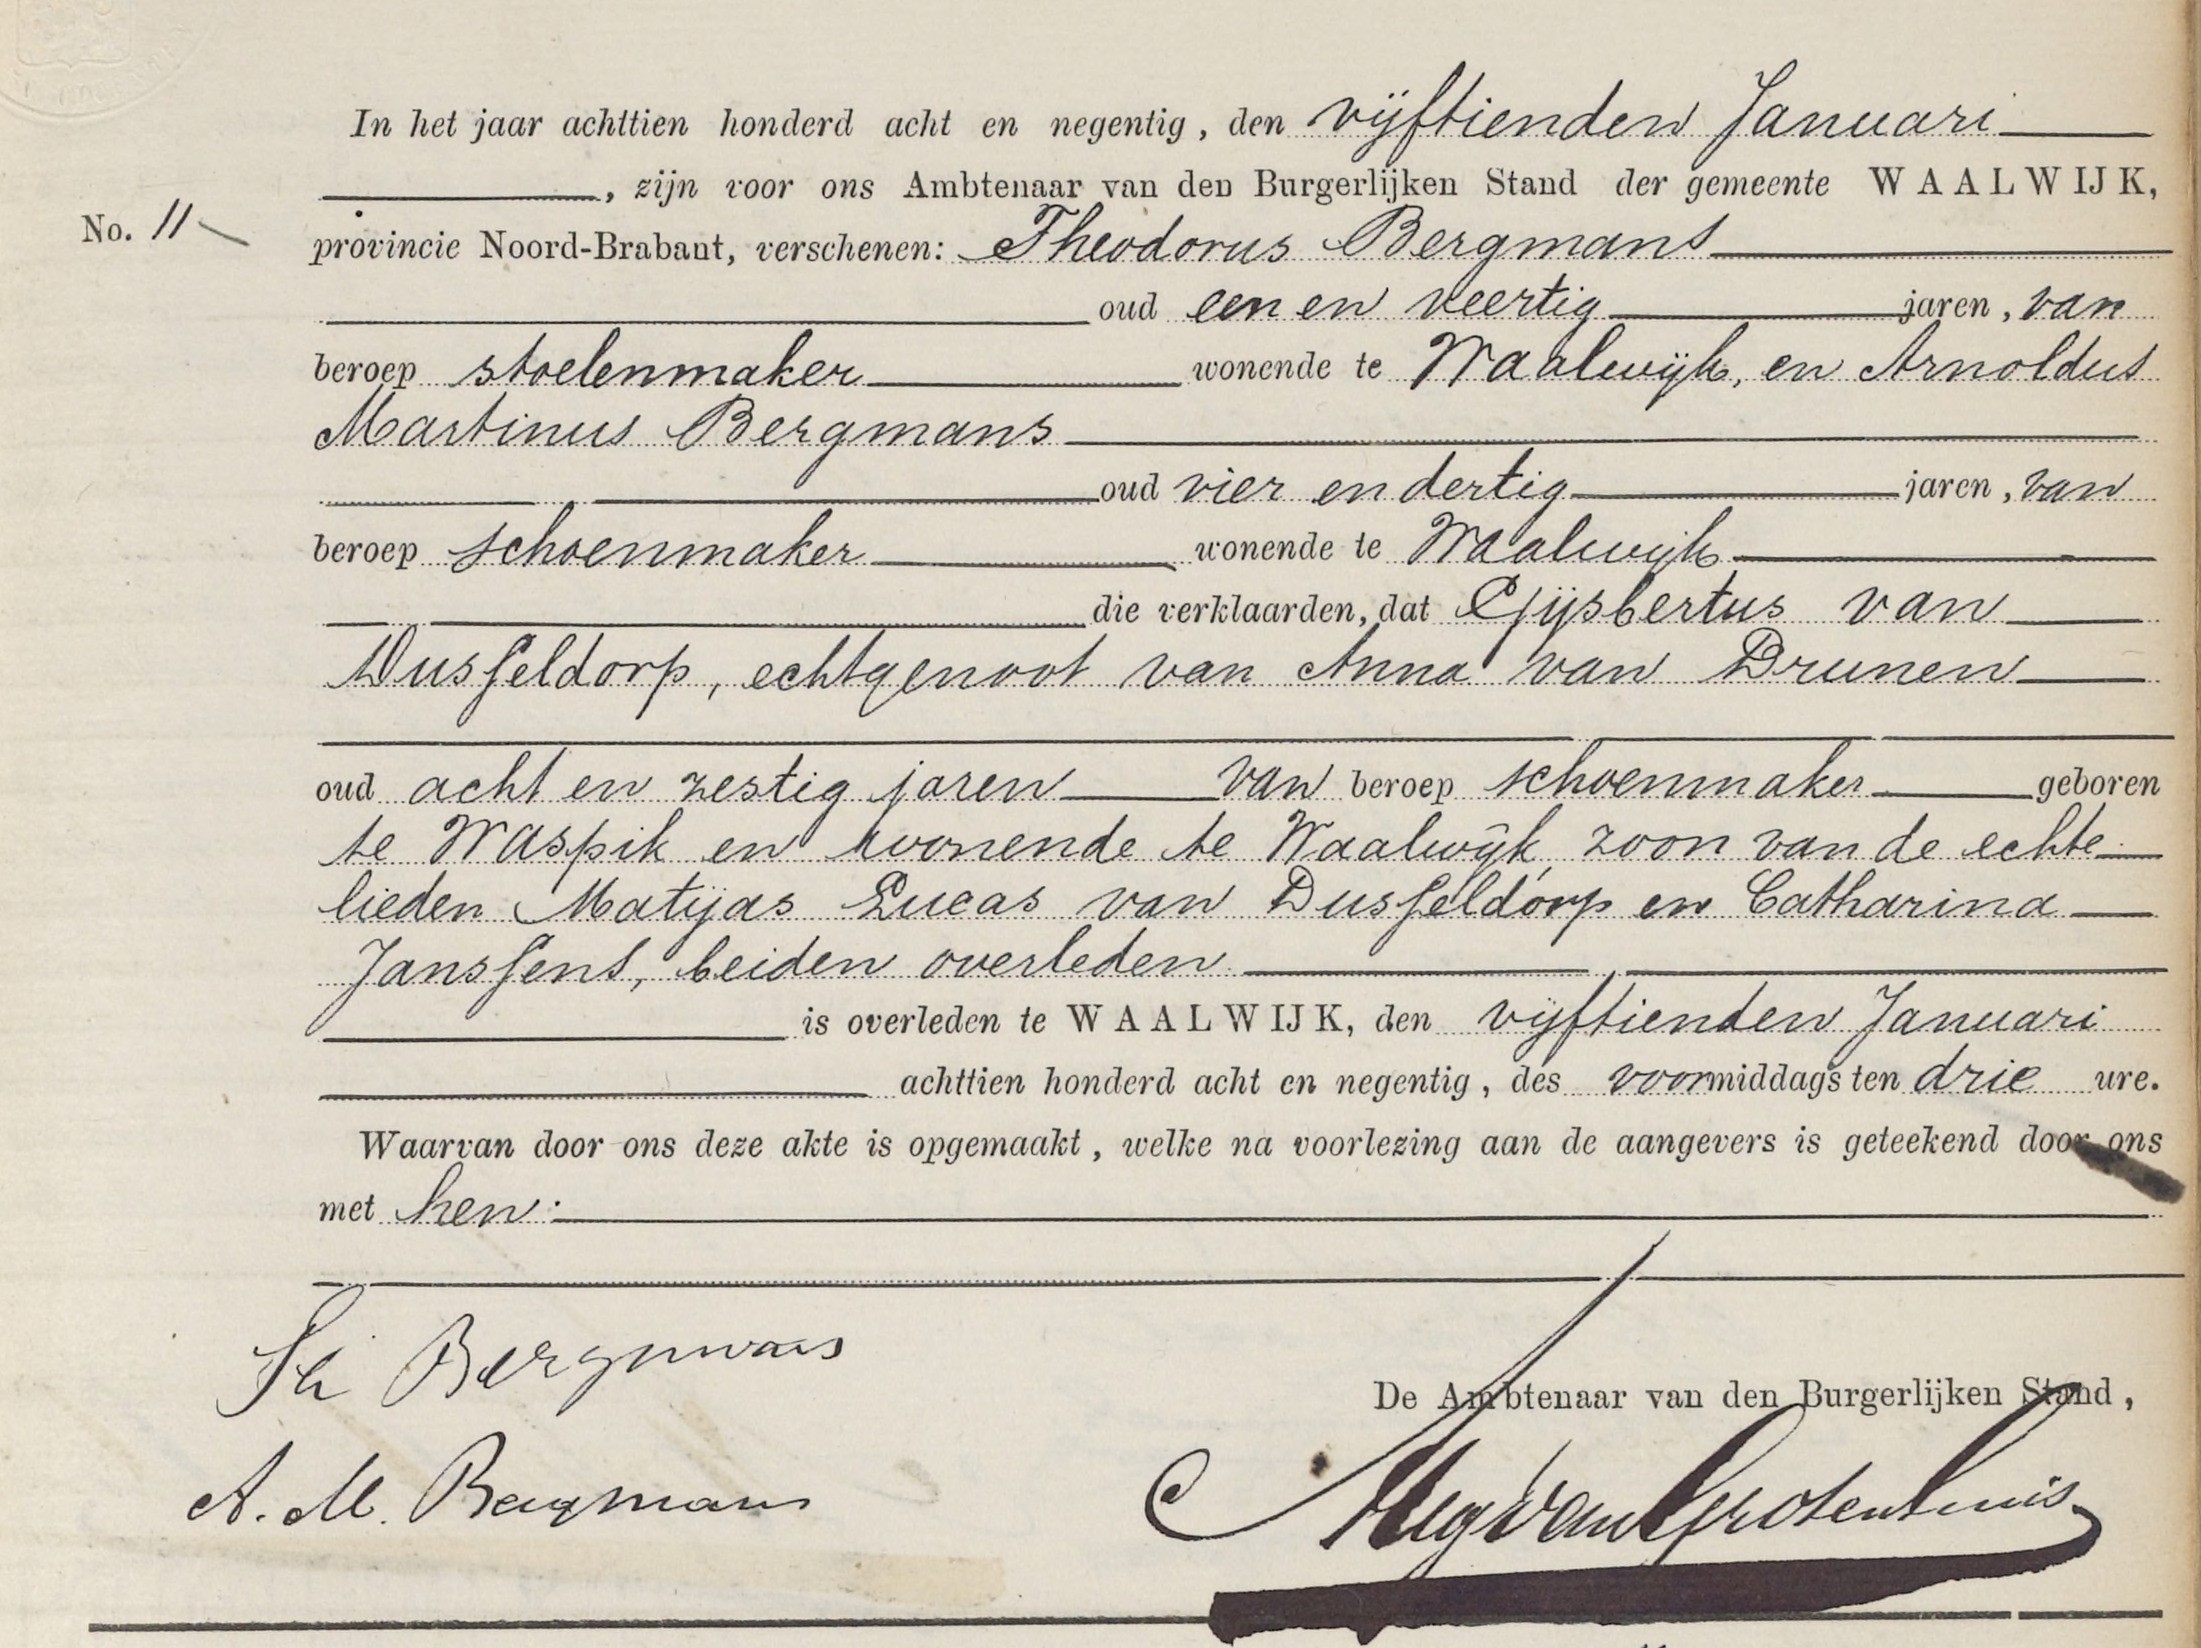 In het jaar achttien honderd acht en negentig, den vijftienden Januari
, zijn voor ons Ambtenaar van den Burgerlijken Stand der gemeente WAALWIJK,
No. 11
provincie Noord-Brabant, verschenen: Theodorus Bergmans
oud een en veertig jaren, van
beroep stoelenmaker wonende te Waalwijk, en Arnoldus
Martinus Bergmans
oud vier en dertig jaren, van
beroep schoenmaker wonende te Waalwijk
die verklaarden, dat Gijsbertus van
Dusseldorp, echtgenoot van Anna van Drunen
oud acht en zestig jaren van beroep schoenmaker geboren
te Waspik en wonende te Waalwijk, zoon van de echte
lieden Matijas Lucas van Dusseldorp en Catharina
Janssens, beiden overleden
is overleden te WAALWIJK, den vijftienden Januari
achttien honderd acht en negentig, des voormiddags ten drie ure.
Waarvan door ons deze akte is opgemaakt, welke na voorlezing aan de aangevers is geteekend door ons
met hen.
Th Bergmans
De Ambtenaar van den Burgerlijken Stand,
A. M. Bergmans
van Grotenhuis